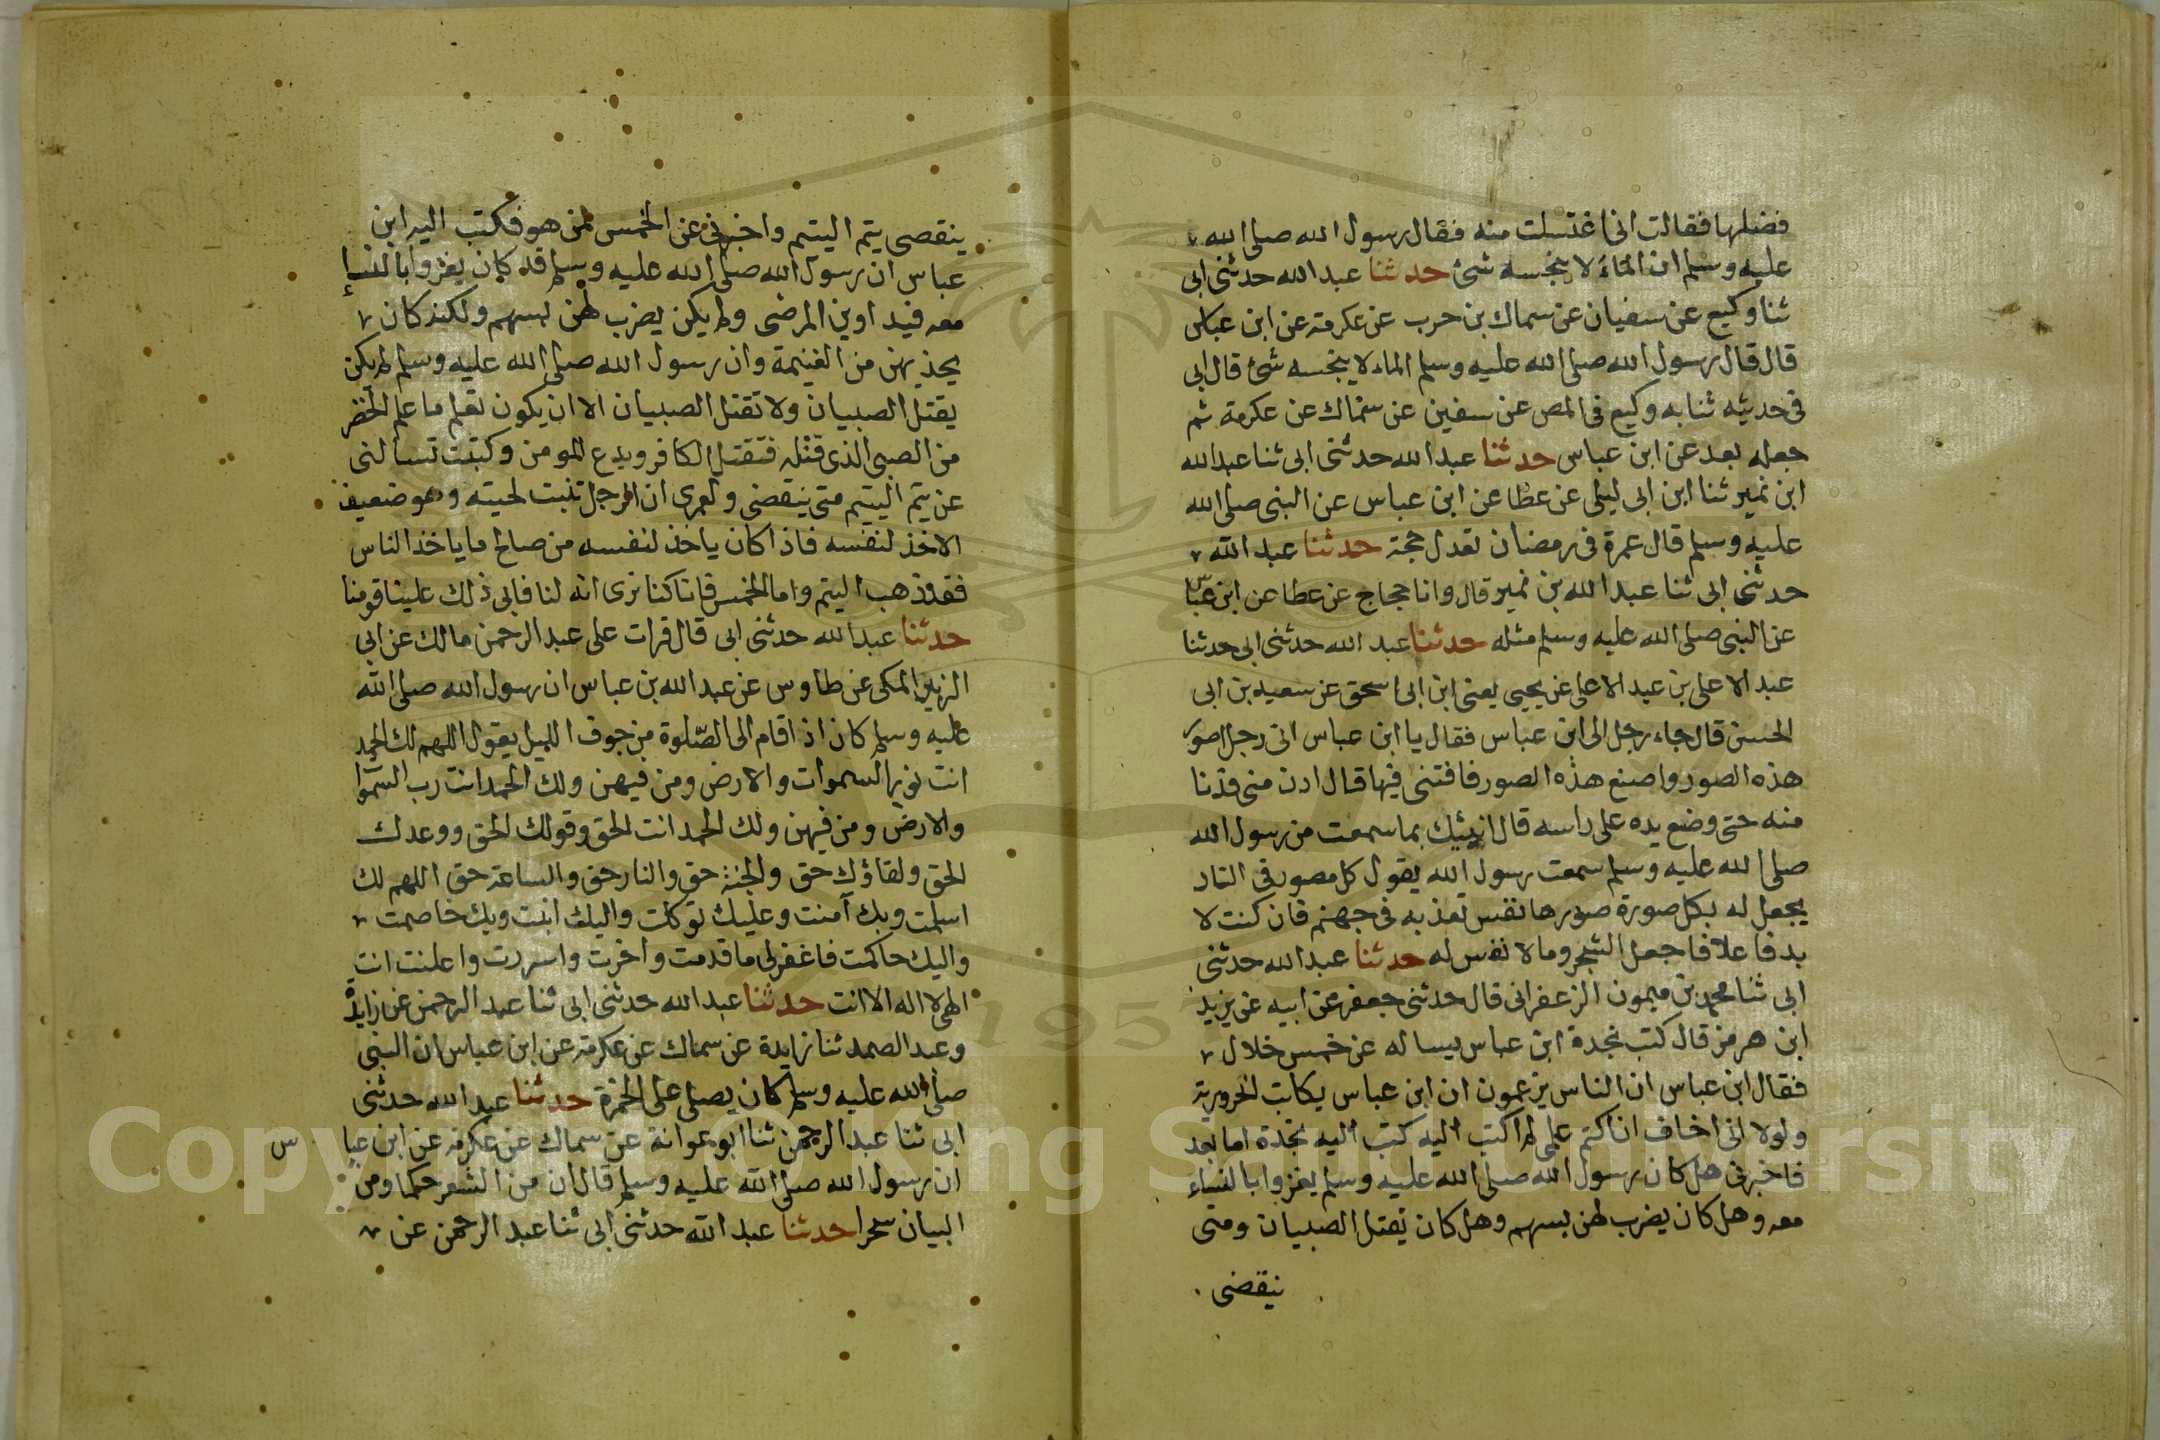 فضلها فقالت انى اغتسلت منه فقال رسول الله صلى الله
عليه وسلم ان الماء لا ينجسه شئ حدثنا عبد الله حدثنى ابى
ثنا وكيع عن سفيان عن سماك بن حرب عن عكرمة عن ابن عباس
قال قال رسول الله صلى الله عليه وسلم الماء لا ينجسه شئ قال ابى
فى حديثه ثنا به وكيع فى المص عن سفين عن سماك عن عكرمة ثم
جعله بعد عن ابن عباس حدثنا عبد الله حدثنى ابى ثنا عبد الله
ابن نمير ثنا ابن ابى ليلى عن عطا عن ابن عباس عن النبى صلى الله
عليه وسلم قال عمرة فى رمضان تعدل حجة حدثنا عبد الله
حدثنى ابى ثنا عبد الله بن نمير قال وانا حجاج عن عطا عن ابن عباس
عن النبى صلى الله عليه وسلم مثله حدثنا عبد الله حدثنى ابى حدثنا
عبد الاعلى بن عبد الاعلى عن يحيى يعنى ابن ابى اسحق عن سعيد بن ابى
الحسن قال جاء رجل الى ابن عباس فقال يا ابن عباس انى رجل اصور
هذه الصور واصنع هذه الصور فافتنى فيها قال ادن منى فدنا
منه حتى وضع يده على راسه قال انبئك بما سمعت من رسول الله
صلى الله عليه وسلم سمعت رسول الله يقول كل مصور فى النار
يجعل له بكل صورة صورها نفس تعذبه فى جهنم فان كنت لا
بد فاعلا فاجعل الشجر وما لا نفس له حدثنا عبد الله حدثنى
ابى ثنا محمد بن ميمون الزعفرانى قال حدثنى جعفر عن ابيه عن يزيد
ابن هرمز قال كتب نجدة ابن عباس يساله عن خمس خلال
فقال ابن عباس ان الناس يزعمون ان ابن عباس يكاتب الحرورية
ولولا انى اخاف ان اكتم علمى لم اكتب اليه كتب اليه نجدة اما بعد
فاخبرنى هل كان رسول الله صلى الله عليه وسلم يغزوا بالنساء
معه وهل كان يضرب لهن بسهم وهل كان يقتل الصبيان ومتى
ينقضى
ينقضى يتم اليتيم واخبرنى عن الخمس لمن هو فكتب اليه ابن
عباس ان رسول الله صلى الله عليه وسلم قد كان يغزوا بالنساء
معه فيداوين المرضى ولم يكن يضرب لهن بسهم ولكنه كان
يحذيهن من الغنيمة وان رسول الله صلى الله عليه وسلم لم يكن
يقتل الصبيان ولا تقتل الصبيان الا ان يكون تعلم ما علم الخضر
من الصبى الذى قتله فتقتل الكافر ويدع المومن وكتبت تسالنى
عن يتم اليتيم متى ينقضى ولعمرى ان الرجل تنبت لحيته وهو ضعيف
الاخذ لنفسه فاذا كان ياخذ لنفسه من صالح ما ياخذ الناس
فقد ذهب اليتم واما الخمس فانا كنا نرى انه لنا فابى ذلك علينا قومنا
حدثنا عبد الله حدثنى ابى قال قرات على عبد الرحمن مالك عن ابى
الزبير المكى عن طاوس عن عبد الله بن عباس ان رسول الله صلى الله
عليه وسلم كان اذا قام الى الصلوة من جوف الليل يقول اللهم لك الحمد
انت نور السموات والارض ومن فيهن ولك الحمد انت رب السموا
والارض ومن فيهن ولك الحمد انت الحق وقولك الحق ووعدك
الحق ولقاؤك حق والجنة حق والنار حق والساعة حق اللهم لك
اسلمت وبك آمنت وعليك توكلت واليك انبت وبك خاصمت
واليك حاكمت فاغفر لى ما قدمت واخرت واسررت واعلنت انت
الهى لا اله الا انت حدثنا عبد الله حدثنى ابى ثنا عبد الرحمن عن زايدة
وعبد الصمد ثنا زايدة عن سماك عن عكرمة عن ابن عباس ان النبى
صلى الله عليه وسلم كان يصلى على الخمرة حدثنا عبد الله حدثنى
ابى ثنا عبد الرحمن ثنا ابو عوانة عن سماك عن عكرمة عن ابن عبا س
ان رسول الله صلى الله عليه وسلم قال ان من الشعر حكما ومن
البيان سحرا حدثنا عبد الله حدثنى ابى ثنا عبد الرحمن عن
Copyright © King Saud University
195